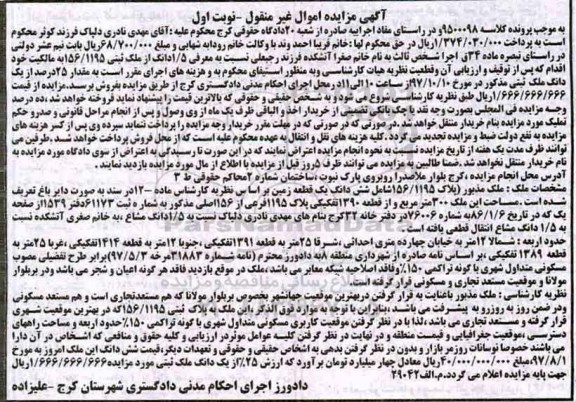 آگهی مزایده اموال غیر منقول -نوبت اول
به موجب پرونده کلاسه ۹۵۰۰۰۹۸و در راستای مفاد اجراییه صادره از شعبه ۲۰دادگاه حقوقی کرج محکوم علیه :آقای مهدی نادری دلپاک فرزند کوثر محکوم
است به پرداخت ۱/۳۷۴/۰۳۰/۰۰۰ریال در حق محکوم لها :خانم فریبا احمد وند با وکالت خانم رودابه شهابی و مبلغ ۶۸/۷۰۰/۰۰۰ریال بابت نیم عشر دولتی
در راستای تبصره ماده ۳۴ق اجرا شخص ثالث به نام خانم صفرا آتشکده فرزند رجبعلی نسبت به معرفی ۱/۵دانگ از ملک ثبتی ۱۵۶/۱۱۹۵به مالکیت خود
اقدام که پس از توقیف و ارزیابی آن وقطعیت نظریه هیات کارشناسی وبه منظور استیفای محکوم به و هزینه های اجرای مقرر است به مقدار ۲۵درصد از یک
دانگ ملک ثبتی مذکور در مورخ ۹۷/۱۰/۱۰از ساعت ۱۰الی ۱۱در محل اجرای احکام مدنی دادگستری کرج از طریق مزایده بفروش برسد.مزایده از قیمت
۱/۶۶۶/۶۶۶/۶۶۶ریال طبق نظریه کارشناسی شروع می شود و به شخص حقیقی و حقوقی که بالاترین قیمت را پیشنهاد نماید فروخته خواهد شد ،ده درصد
وجه مزایده فی المجلس بصورت وجه نقد یا چک بانکی تضمینی از خریدار اخذ و الباقی ظرف یک ماه از وی وصول و پس از انجام مراحل قانونی و صدرو حکم
تملیک مورد مزایده بنام خریدار منتقل خواهد شد.در صورتی که در صورتی که در موعد مقرر خریدار وجه مزایده را پرداخت ننماید سپرده وی پس از کسر هزینه های
مزایده به نفع دولت ضبط و مزایده تجدید می گردد.کلیه هزینه های نقل و انتقال به عهده محکوم علیه است که از محل فروش پرداخت خواهد شد.طرفین می
توانند ظرف مدت یک هفته از تاریخ مزایده نسبت به نحوه انجام مزایده اعتراض نمایند که در این صورت تا رسیدگی به اعتراض از سوی دادگاه مورد مزایده به
نام خریدار منتقل نخواهد شد.ضمنا طالبین به مزایده می توانند ظرف ۵روز قبل از مزایده با اطلاع از مال مورد مزایده بازدید نمایند.
آدرس محل انجام مزایده ،کرج بلوار ملاصدرا روبروی پارک نبوت ،ساختمان شماره ۲محاکم حقوقی ط ۳
مشخصات ملک : ملک مذبور (پلاک ۱۵۶/۱۱۹۵شامل شش دانگ یک قطعه زمین بر اساس نظریه کارشناس ماده -۱۲در سند به صورت دایر باغ تعریف
شده است .مساحت این ملک ۳۰۰متر مربع و از قطعه ۱۳۹۰تفکیکی پلاک ۱۱۹۵فرعی از ۱۵۶اصلی مذکور به شماره ثبت ۶۱۱۷۳دفتر ۱۵۳۹از صفحه
یک که در تاریخ ۸۶/۱/۶به شماره ۷۶۰۰۶در دفتر خانه ۳۲کرج بنام های مهدی نادری دلپاک نسبت به ۱/۵دانگ مشاع ،به خانم صفری آتشکده نسبت
به ۱/۵ دانگ مشاع انتقال قطعی یافته است .
حدود اربعه : شمالا ۱۲متر به خیابان چهارده متری احداثی ،شرقا ۲۵متر به قطعه ۱۳۹۱تفکیکی ،جنوبا ۱۲متر به قطعه ۱۴۱۴تفکیکی ،غربا ۲۵متر به
قطعه ۱۳۸۹ تفکیکی ،بر اساس نامه صادره از شهرداری منطقه ۸به دادورز محترم (نامه شماره ۳۱۸۸۳مورخه ۹۷/۵/۳)برابر طرح تفصیلی مصوب
مسکونی متداول شهری با گونه تراکمی ۱۵۰٪وفاقد اصلاحیه شبکه معابر می باشد،ملک در موقع بازدید فاقد هر گونه اعیان و شجر می باشد و در بریلوار
مولانا و موقعیت مستعد تجاری و مسکونی قرار گرفته است.
نظریه کارشناسی : ملک مذبور باعنایت به قرار گرفتن دربهترین موقعیت جهانشهر بخصوص بریلوار مولانا که هم مستعدتجاری است و هم مستعد مسکونی
ودر ضمن روز به روزرو به پیشرفت می باشد،بنابراین با توجه به موارد فوق الذکر،این ملک و پلاک ثبتی ۱۵۶/۱۱۹۵که در بهترین موقعیت شهری
قرار گرفته و مستعد تجاری می باشد،لذا با در نظر گرفتن موقعیت کاربری مسکونی متداول شهری با گونه تراکمی ۱۵۰٪حدود اربعه و مساحت راههای
دسترسی،موقعیت جغرافیایی و قیمت منطقه و در نهایت در نظر گرفتن کلیه عوامل موثردر ارزیابی و کلیه حقوق و منافعی که اشخاص در آن دارا
می باشند خصوصا نوسانات روزمر بازار و بدون در نظر گرفتن بدهی به اشخاص حقیقی و حقوقی و تعهدات دیگر،قیمت شش دانگ این ملک امروز به مورخ
۹۷/۸/۱،مبلغ ۴۰/۰۰۰/۰۰۰/۰۰۰ریال معادل چهار میلیارد تومان برآورد می گردد.که ارزش ۲۵٪از یک دانگ ملک ثبتی مورد مزایده ۱/۶۶۶/۶۶۶/۶۶۶ریال
جهت پایه مزایده اعلام می گردد.م.الف ۲۹۰۴۲
دادورز اجرای احکام مدنی دادگستری شهرستان کرج -علیزاده